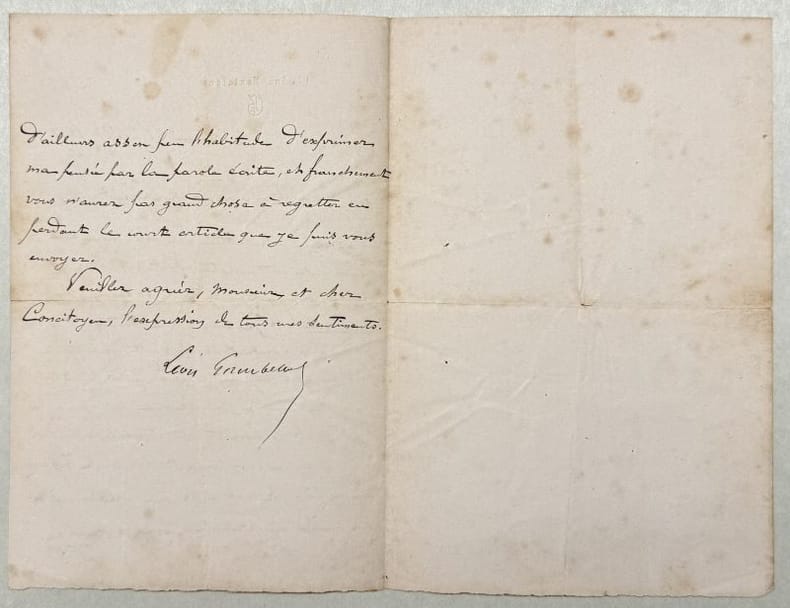 d'ailleurs assez peu l'habitude d'exprimer
ma pensée par la parole écrite, et franchement
vous n'aurez pas grand chose à regretter en
perdant le court article que je puis vous
envoyer.
Veuillez agréer, Monsieur et cher
Concitoyen, l'expression de tous mes sentiments.
Léon